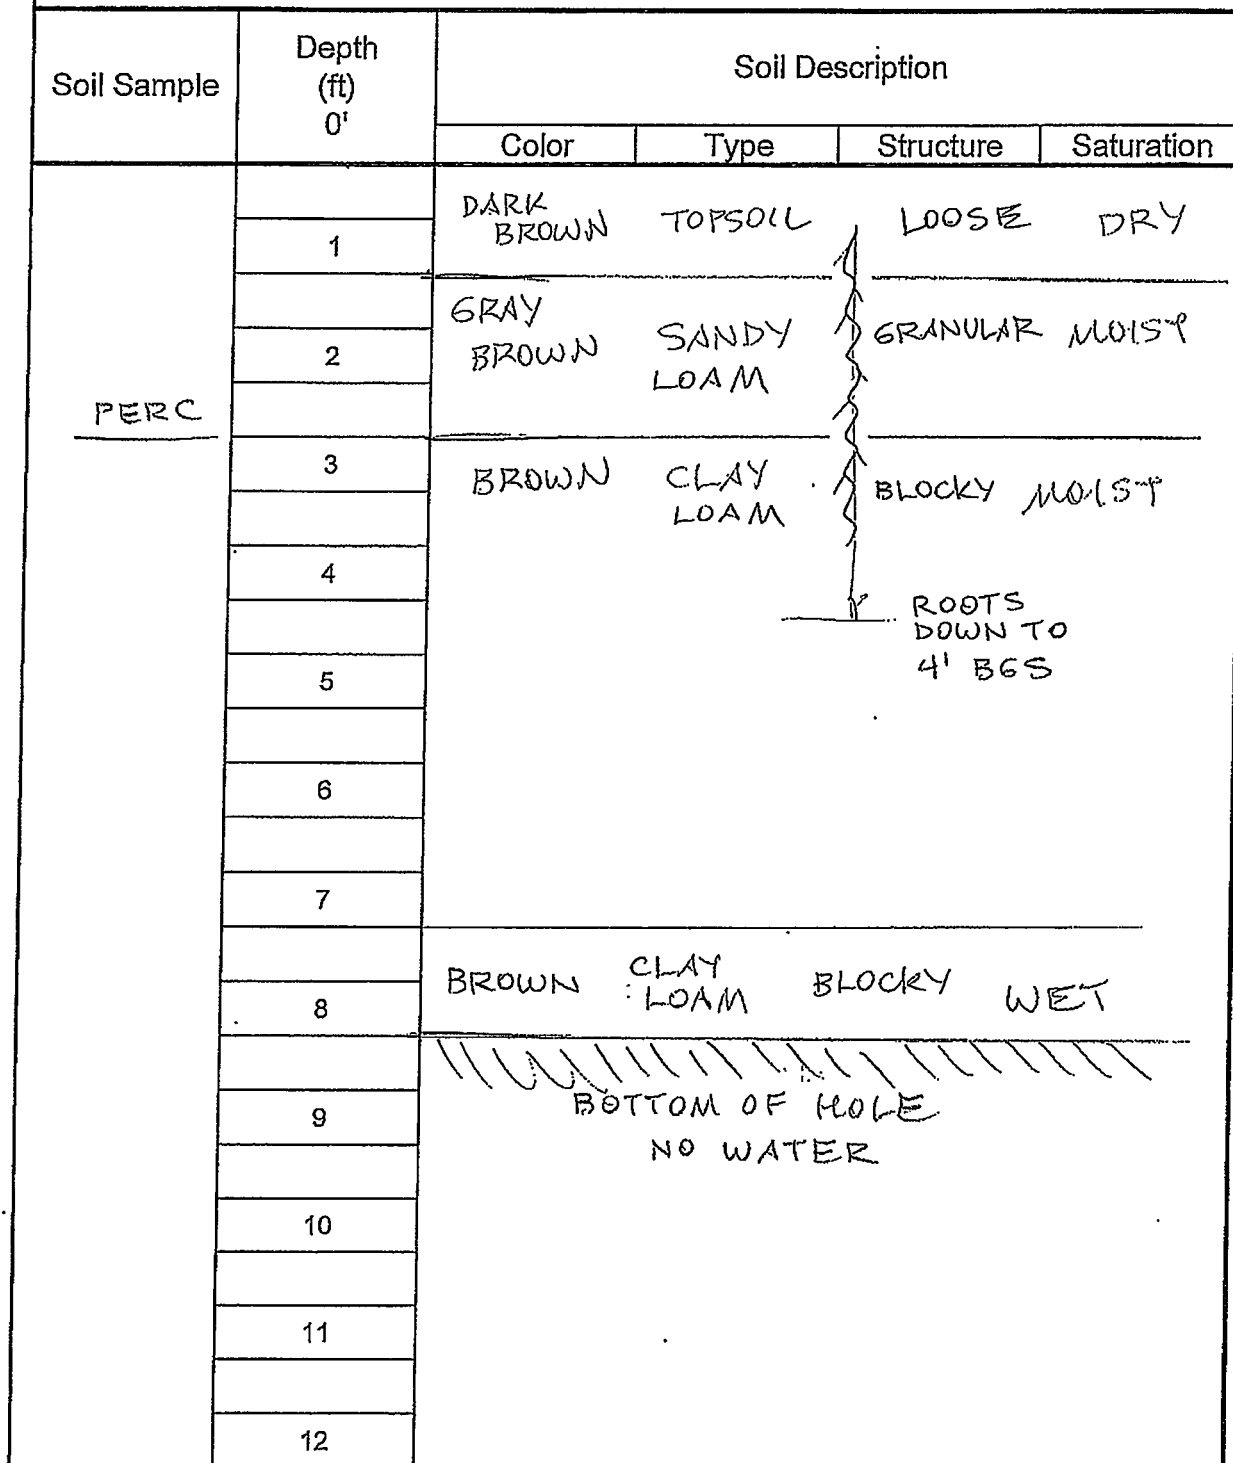 Soil Sample
Depth
(ft)
0'
Soil Description
Color Type Structure Saturation
DARK
BROWN TOPSOIL LOOSE DRY
1
GRAY
BROWN SANDY GRANULAR MOIST
LOAM
2
PERC
3
BROWN CLAY BLOCKY MOIST
LOAM
4
ROOTS
DOWN TO
4' BGS
5
6
7
BROWN CLAY BLOCKY WET
LOAM
8
BOTTOM OF HOLE
9
NO WATER
10
11
12